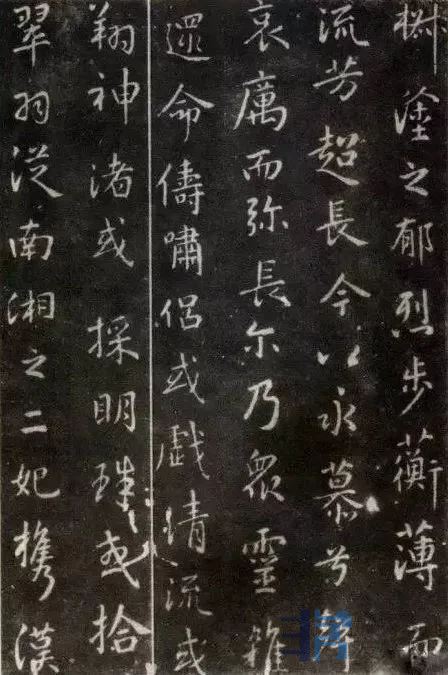 椒塗之郁烈步蘅薄而
流芳超長今以永慕兮聲
哀厲而弥長尔乃眾靈雜
遝命儔嘯侶或戲清流或
翔神渚或採明珠或拾
翠羽從南湘之二妃攜漢